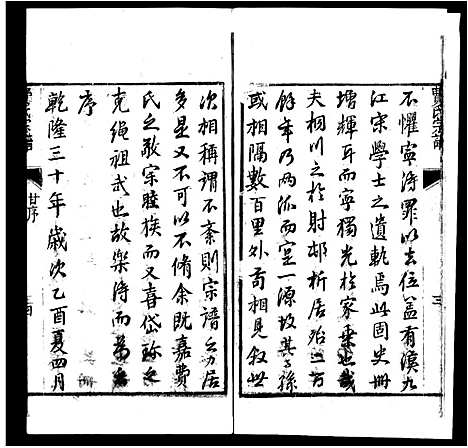 不懼寧得罪以去位蓋有漢九
江宋學士之遺軌焉此固史冊
增輝耳而寧獨光於家乘哉
夫桐川之於射邨析居殆二百
餘年乃兩派而實一源故其子孫
或相隔數百里外苟相見叙世
次相稱謂不紊則宗譜之力居
多是又不可以不脩余既嘉費
氏之敬宗睦族而又喜岱弥之
克繩祖武也故樂得而為之
序
乾隆三十年歲次乙酉夏四月
費氏宗譜
甘序
三
四